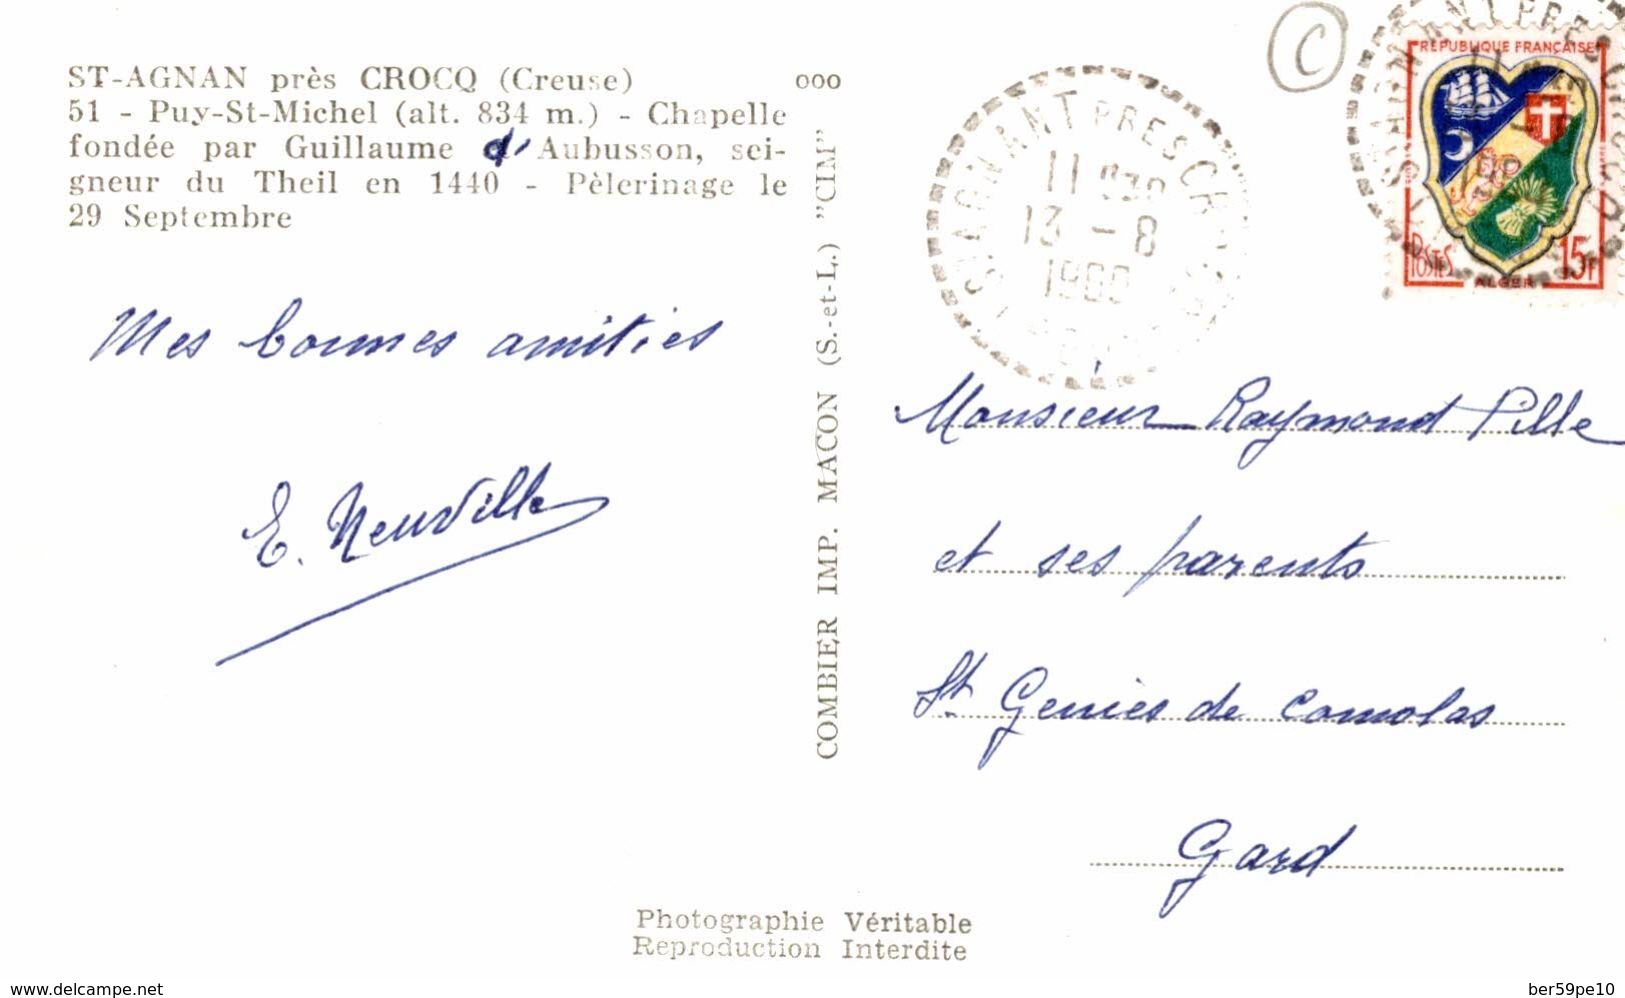 ST-AGNAN près CROCQ (Creuse) ooo
51 - Puy-St-Michel (alt. 834 m.) - Chapelle
fondée par Guillaume d'Aubusson, sei-
gneur du Theil en 1440 - Pèlerinage le
29 Septembre
Mes bonnes amitiés
E. Neuville
COMBIER IMP. MACON (S.-et-L.) "CIM"
Photographie Véritable
Reproduction Interdite
C
ST AGNANT PRES CR
11 H 30
13 - 8
1960
REPUBLIQUE FRANÇAISE
POSTES
ALGER
15F
Monsieur Raymond Pille
et ses parents
St. Geniès de Comolas
Gard
www.delcampe.net
ber59pe10